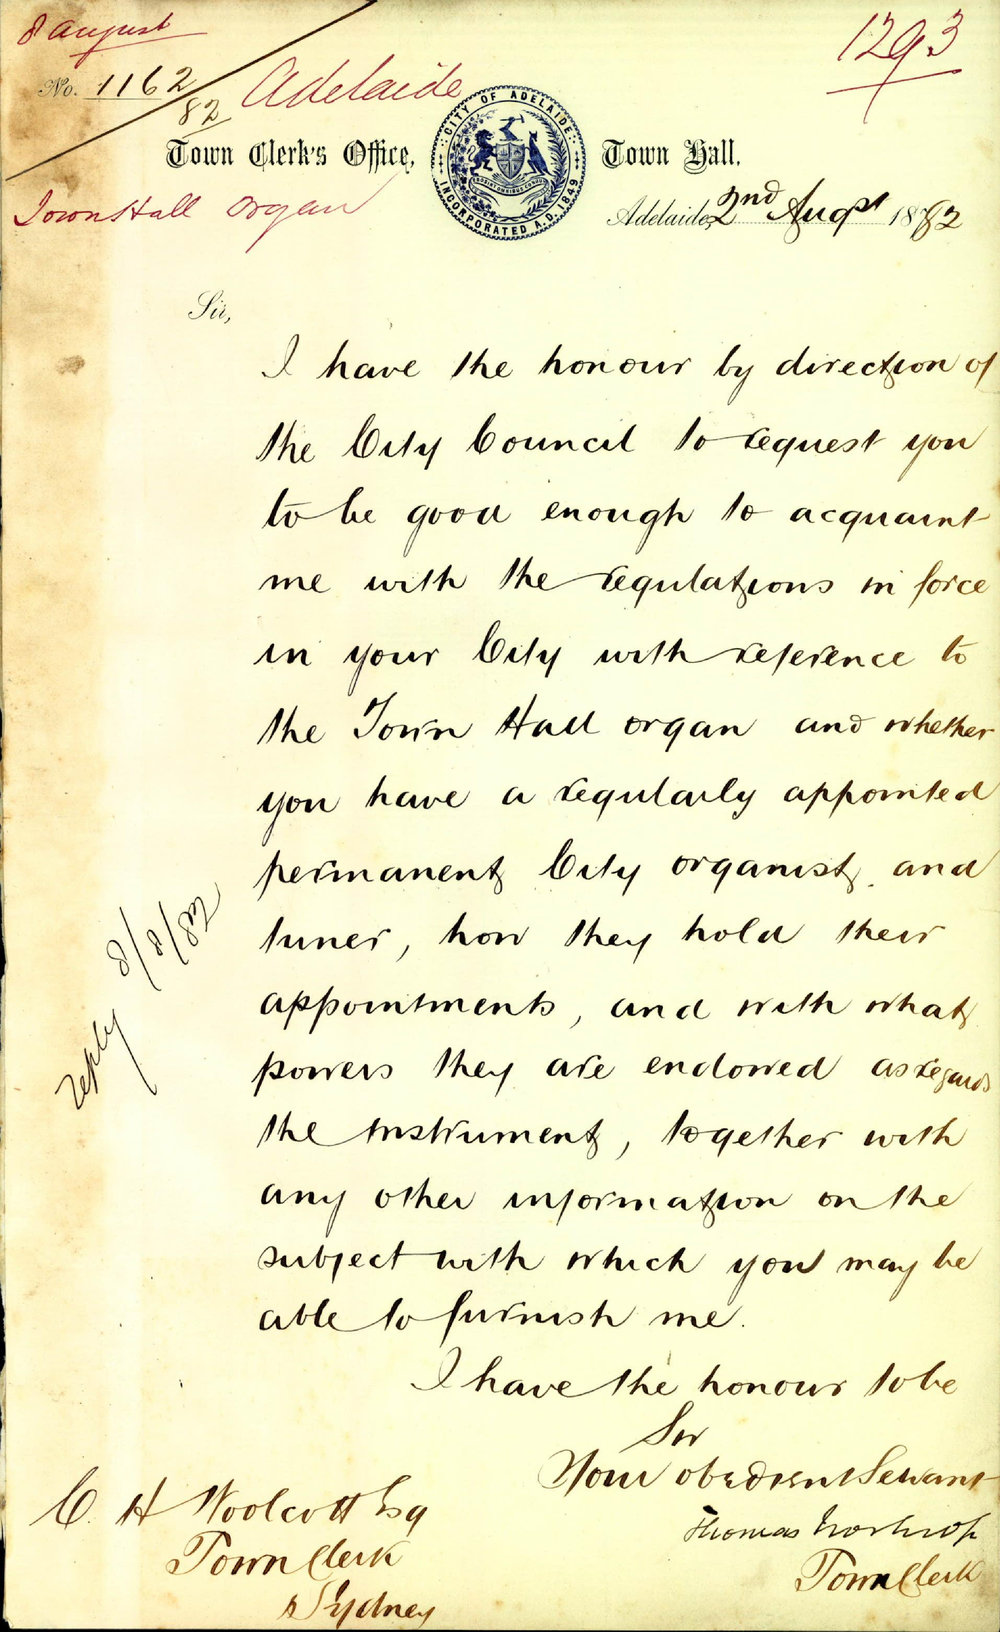 8 August
1293
No. 1162/82
Adelaide
CITY OF ADELAIDE
INCORPORATED A.D. 1849
Town Clerk's Office, Town Hall,
Town Hall Organ
Adelaide, 2nd Augst 1882
Sir,
I have the honour by direction of
the City Council to request you
to be good enough to acquaint
me with the regulations in force
in your City with reference to
the Town Hall organ and whether
you have a regularly appointed
permanent City organist, and
tuner, how they hold their
appointments, and with what
powers they are endowed as regards
the instrument, together with
any other information on the
subject with which you may be
able to furnish me.
reply 8/8/82
I have the honour to be
Sir
Your obedient Servant
Thomas Worsnop
Town Clerk
C. H Woolcott Esq
Town Clerk
Sydney